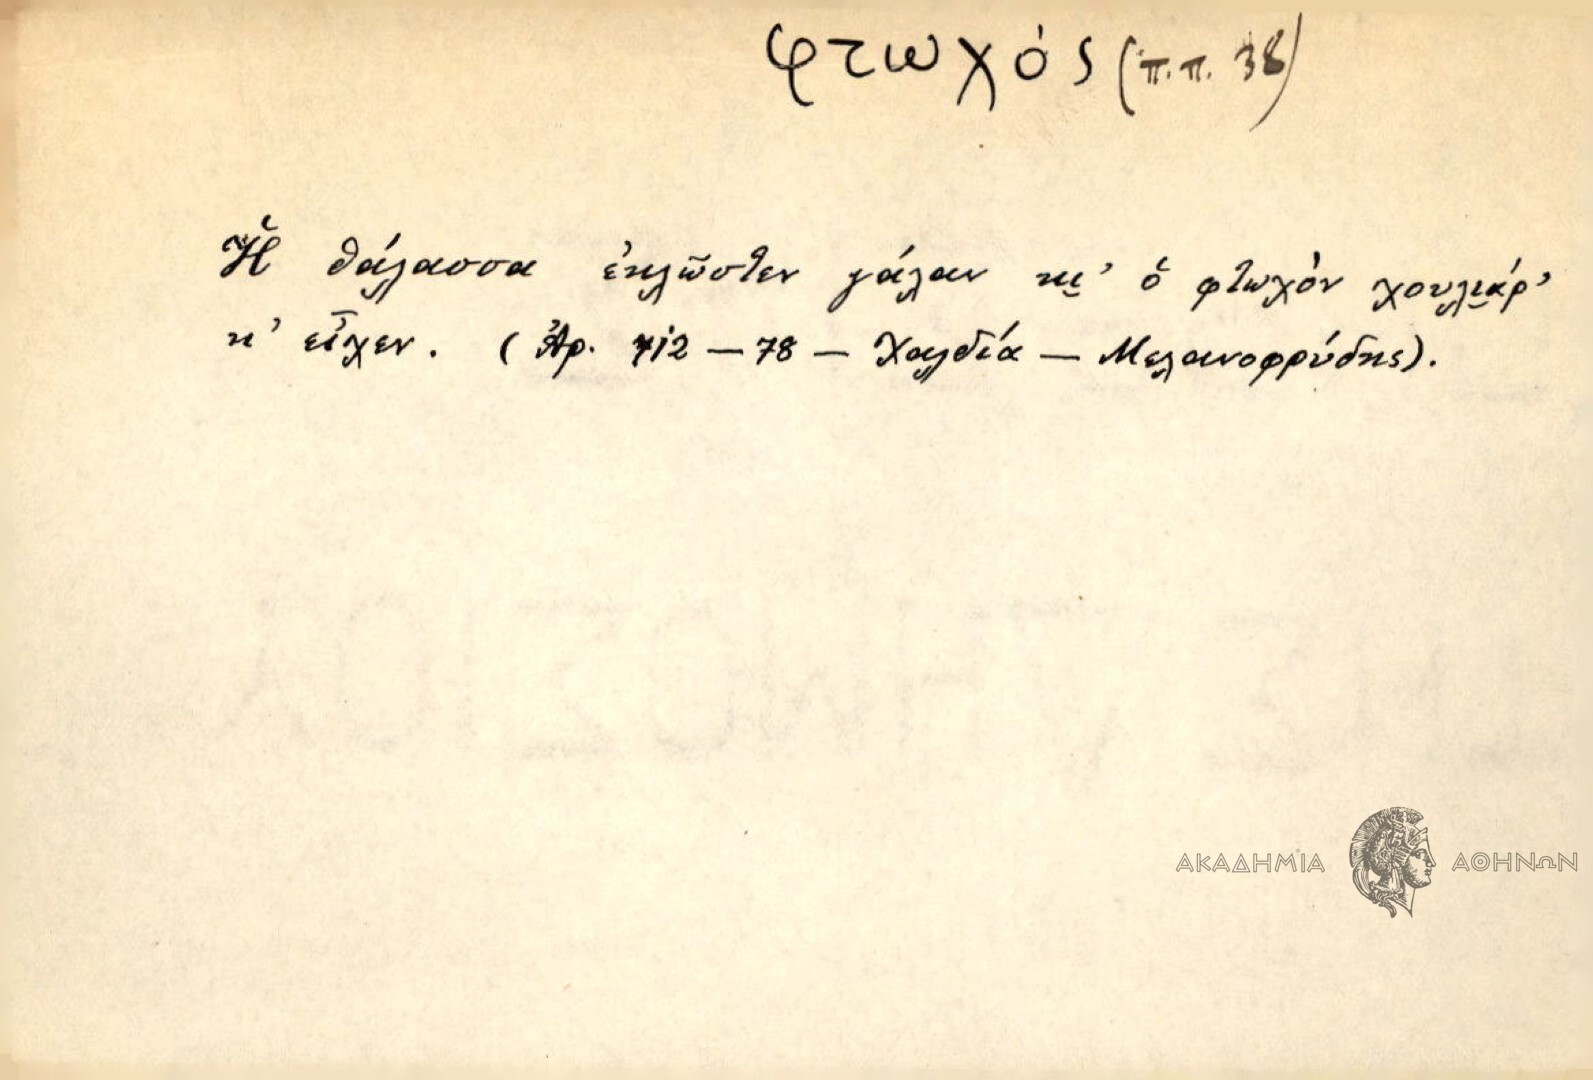 φτωχός (π.π. 38)
Ἡ θάλασσα ἐκλῶστεν γάλαν κι̯' ὁ φτωχὸν χουλι̯άρ'
κ' εἶχεν. (Ἀρ. 712 — 78 — Χαλδία — Μελανοφρύδης).
ΑΚΑΔΗΜΙΑ ΑΘΗΝΩΝ